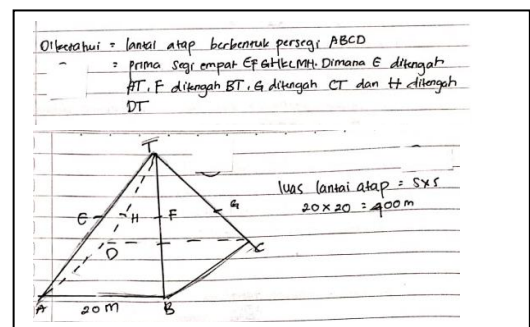 Diketahui = lantai atap berbentuk persegi ABCD
= prima segi empat EFGHKLMN. Dimana E ditengah
AT, F ditengah BT, G ditengah CT dan H ditengah
DT
T
luas lantai atap = s×s
20×20 = 400m
E H F G
D C
A 20m B